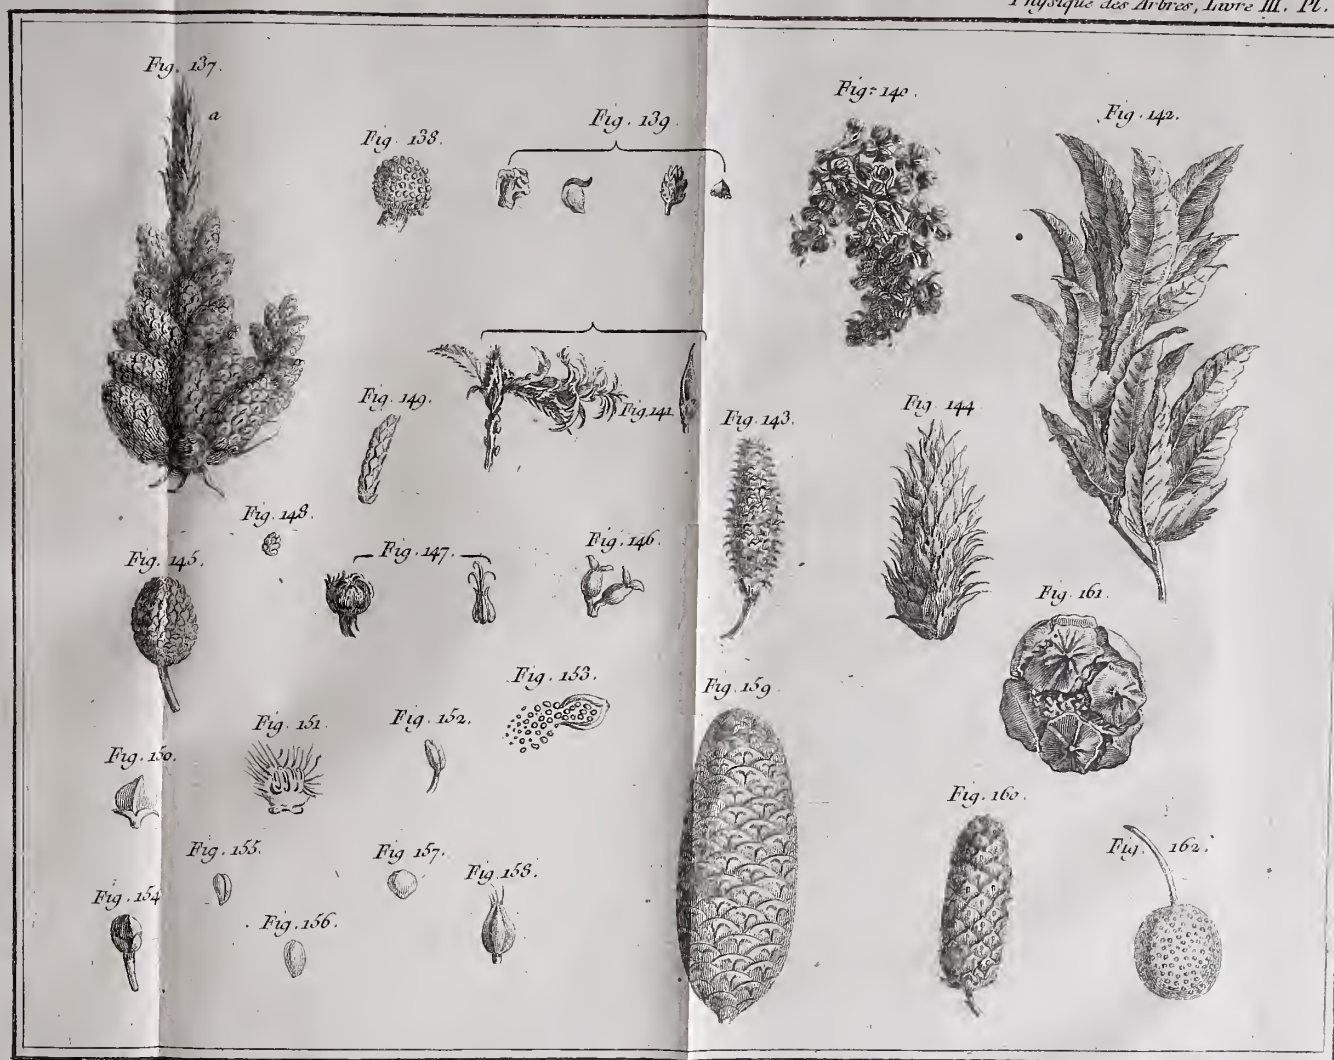 Physique des Arbres, Livre III. Pl.
Fig. 137.
a
Fig. 138.
Fig. 139.
Fig. 140.
Fig. 142.
Fig. 149.
Fig. 141.
Fig. 143.
Fig. 144
Fig. 148.
Fig. 145.
Fig. 147.
Fig. 146.
Fig. 161.
Fig. 153.
Fig. 159
Fig. 151.
Fig. 152.
Fig. 150.
Fig. 160.
Fig. 155.
Fig. 157.
Fig. 162.
Fig. 158.
Fig. 154
Fig. 156.